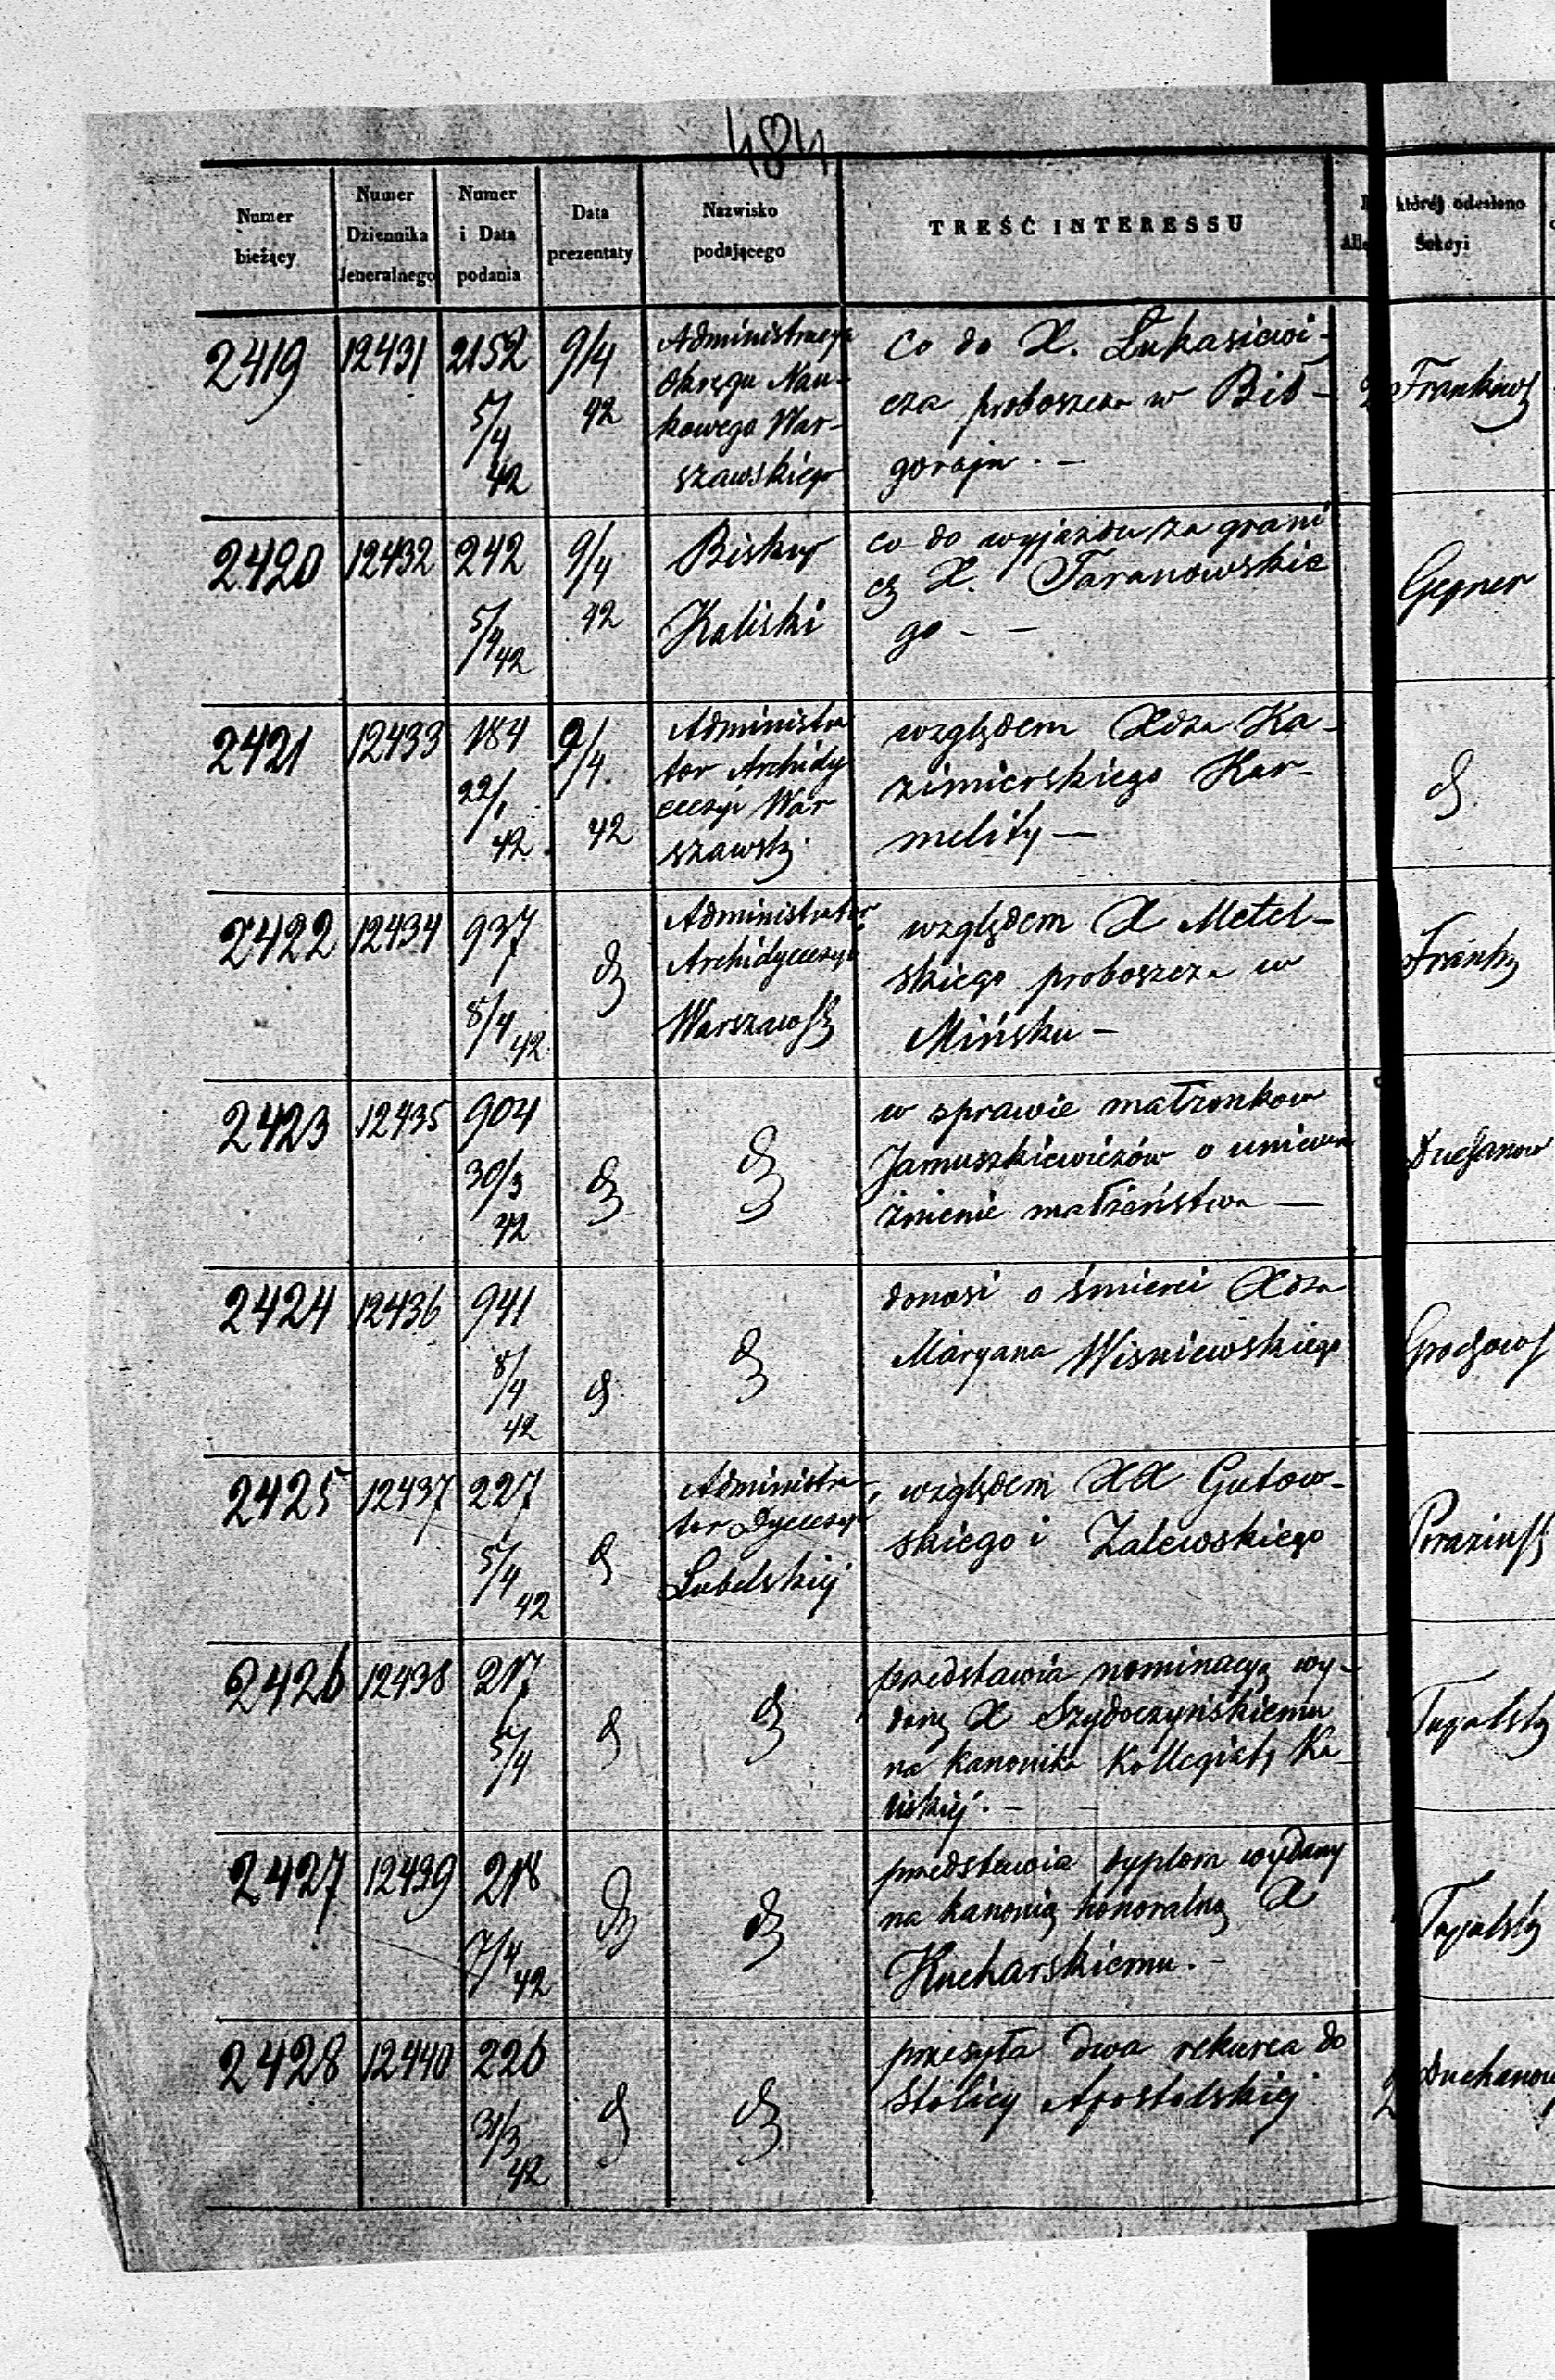 484
Numer bieżący
Numer Dziennika Jeneralnego
Numer i Data podania
Data prezentaty
Nazwisko podającego
TREŚĆ INTERESSU
której odesłano Sekcyi
2419 12431 2152 5/4 42 9/4 42
Administracya
Okręgu Nau-
kowego War-
szawskiego
Co do X. Łukasiewi-
cza proboszcza w Bił-
goraju. —
2420 12432 242 5/4 42 9/4 42
Biskup
Kaliski
co do wyjazdu za grani
cę X. Taranowskie
go - —
Gepner
2421 12433 184 22/1 42. 9/4. 42
Administra
tor Archidy
ecezyi War
szawsk.
względem Xdza Ka-
zimierskiego Kar-
melity —
d
2422 12434 937 8/4 42 d
Administrator
Archidyecezyi
Warszawsk
względem X Metel-
skiego proboszcza w
Mińsku —
2423 12435 904 30/3 42 d d
w sprawie małżonkow
Januszkiewiczów o uniewa
żnienie małżeństwa —
Duchanow
2424 12436 941 8/4 42 d d
donosi o śmierci Xdza
Maryana Wisniewskiego
Grochows
2425 12437 227 5/4 42 d
Administra
tor Dyecezyi
Lubelskiej
względem XX Gutow-
skiego i Zalewskiego
2426 12438 217 5/4 d d
przedstawia nominacyą wy-
daną X Szydoczyńskiemu
na kanonika Kollegiaty Ka
liskiej. —
2427 12439 218 7/4 42 d d
przedstawia dyplom wydany
na kanonią honoralną X
Kucharskiemu. -
2428 12440 226 31/3 42 d d
przesyła dwa rekursa do
Stolicy Apostolskiej
2 Duchanow